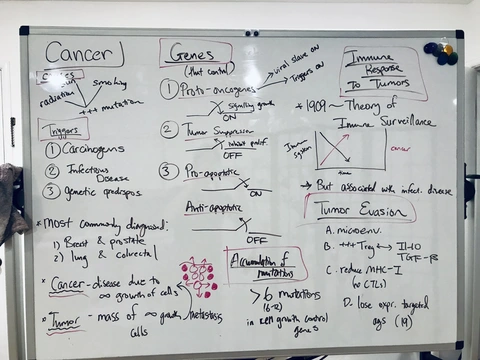 Cancer
causes
sun
radiation
smoking
+++ mutation
Triggers
① Carcinogens
② Infectious
Disease
③ genetic predispos
* Most commonly diagnosed:
1) Breast & prostate
2) lung & colorectal
* Cancer - disease due to
∞ growth of cells
* Tumor - mass of ∞ growth
cells
metastasis
Genes
(that control)
① Proto-oncogenes
→ viral slave ON
→ Triggers ON
signalling growth
ON
② Tumor Suppression
inhibit prolif.
OFF
③ Pro-apoptotic
ON
Anti-apoptotic
OFF
Accumulation of
mutations
> 6 mutations
(6-12)
in KEM growth control
genes
Immune
Response
To Tumors
* 1909 ~ Theory of
Immune Surveillance
Immune
system
cancer
time
→ But associated with infect. disease
Tumor Evasion
A. microenv.
B. +++ Treg ↔ IL-10
TGF-β
C. reduce MHC-I
(no CTLs)
D. lose expr. targeted
ags (19)